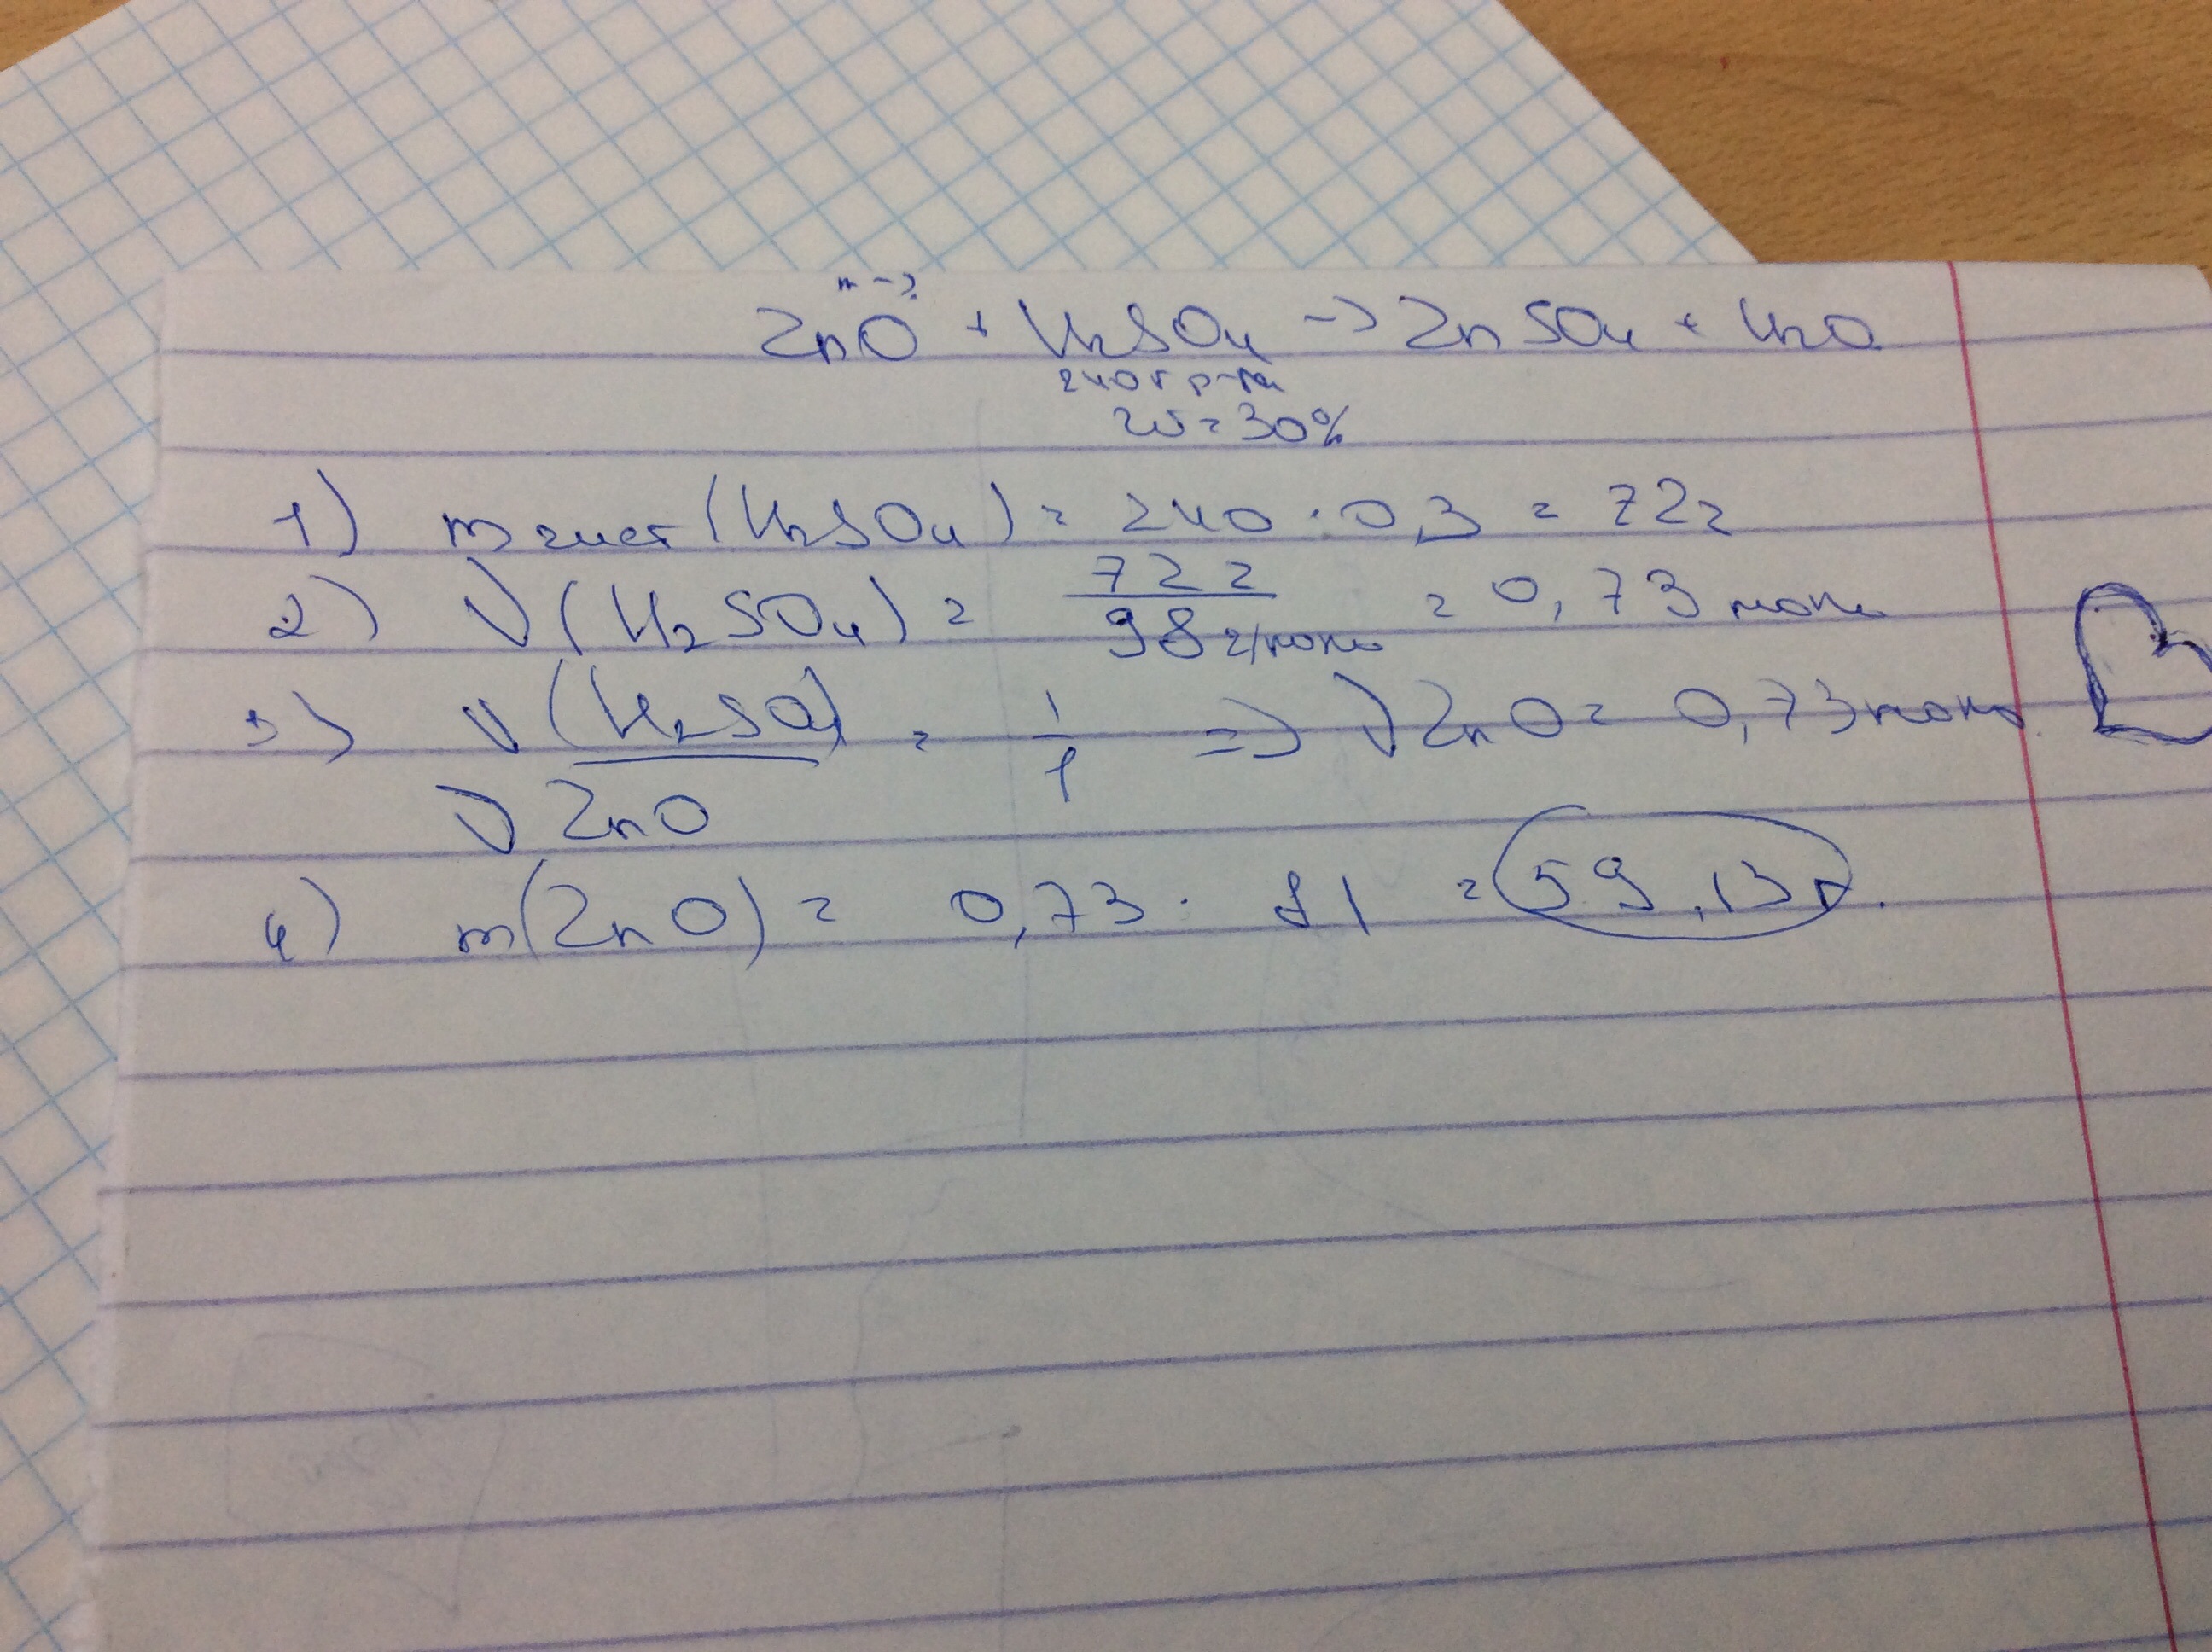 m - ?
ZnO + H₂SO₄ → ZnSO₄ + H₂O
240 г р-ра
w = 30%
1) m чист (H₂SO₄) = 240 · 0,3 = 72г
2) ν(H₂SO₄) = 72г / 98г/моль = 0,73 моль
3) ν(H₂SO₄) / ν ZnO = 1/1 ⇒ ν ZnO = 0,73 моль
4) m(ZnO) = 0,73 · 81 = 59,13 г.